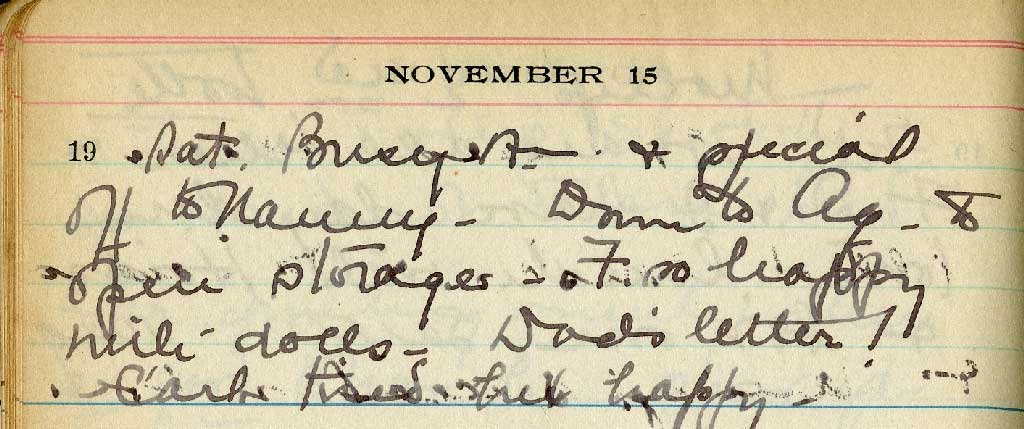 NOVEMBER 15
19 Sat. & special
off to Nanny - Down to Ag. to
open storage - F. so happy
with dolls - Dad's letter!!
tired but happy -